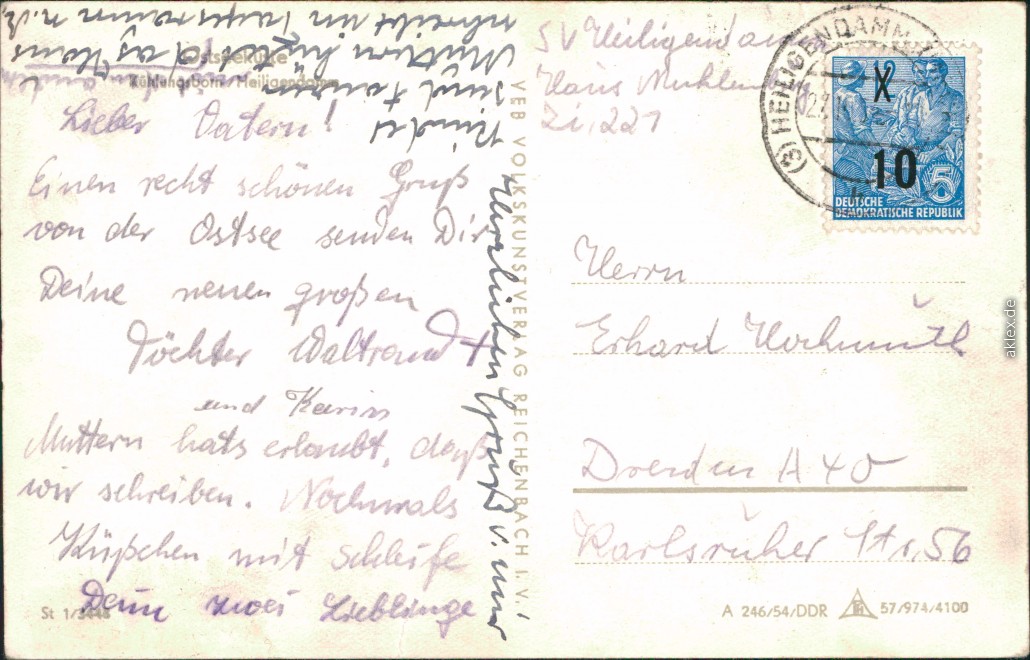 Ostseeküste
Kühlungsborn Heiligendamm
Lieber Vatern!
Einen recht schönen Gruß
von der Ostsee senden Dir
Deine neuen großen
Töchter Waltraud
und Karin
Muttern hats erlaubt, daß
wir schreiben. Nochmals
Küßchen mit Schleife
Deine zwei Lieblinge
St 1/3448
Herzlichen Gruß v. mir
VEB VOLKSKUNSTVERLAG REICHENBACH I. V.
SV Heiligendamm
Haus
Zi. 221
HEILIGENDAMM
10
5
DEUTSCHE
DEMOKRATISCHE REPUBLIK
Herrn
Erhard Hochmuth
Dresden A 40
Karlsruher Str. 56
A 246/54/DDR 57/974/4100
aklex.de